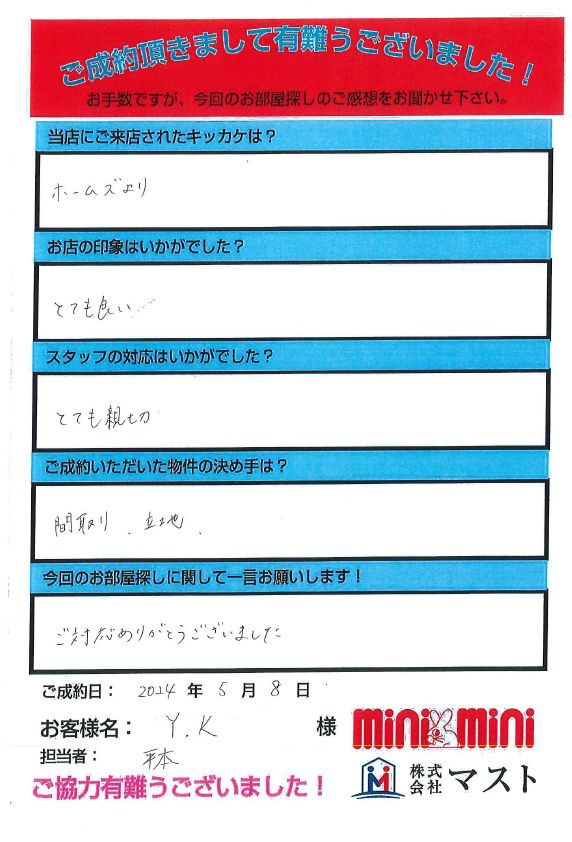 ご成約頂きまして有難うございました！
お手数ですが、今回のお部屋探しのご感想をお聞かせ下さい。
当店にご来店されたキッカケは？
ホームズより
お店の印象はいかがでした？
とても良い
スタッフの対応はいかがでした？
とても親切
ご成約いただいた物件の決め手は？
間取り、立地、
今回のお部屋探しに関して一言お願いします！
ご対応ありがとうございました
ご成約日： 2024 年 5 月 8 日
お客様名： Y.K 様
担当者： 平本
ご協力有難うございました！
mini mini
株式会社 マスト